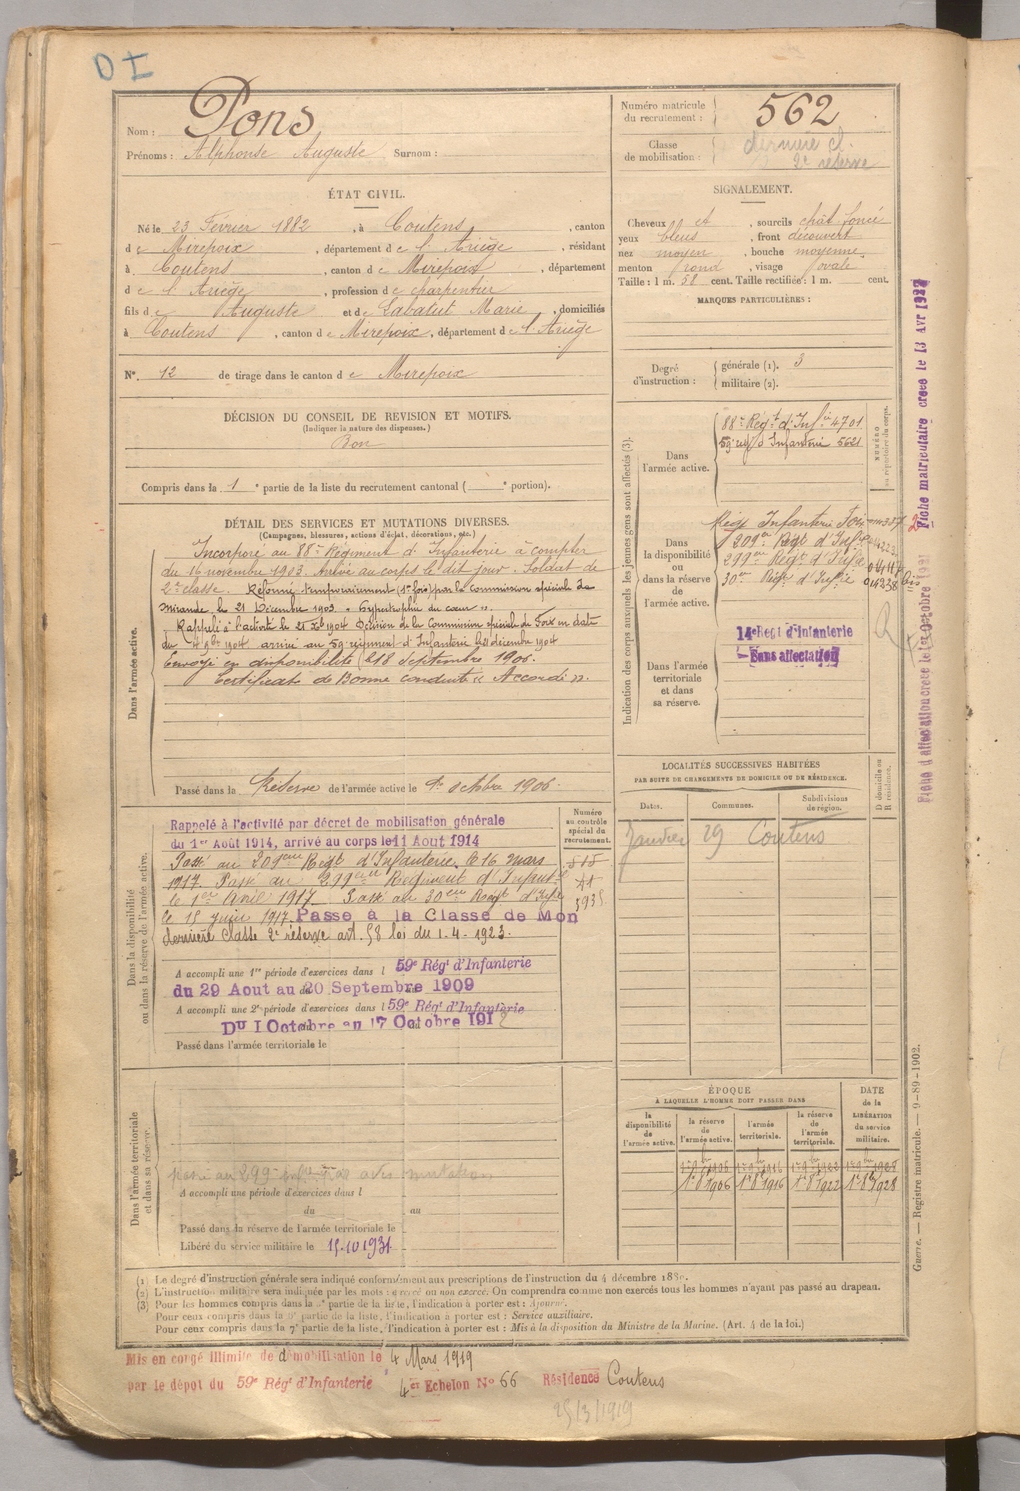 D I
Nom : Pons
Prénoms : Alphonse Auguste Surnom :
Numéro matricule du recrutement : 562
Classe de mobilisation : dernière cl. 2e réserve
ÉTAT CIVIL.
Né le 23 Février 1882, à Coutens, canton
de Mirepoix, département de l'Ariège, résidant
à Coutens, canton de Mirepoix, département
de l'Ariège, profession de charpentier
fils de Auguste et de Labatut Marie, domiciliés
à Coutens, canton de Mirepoix, département de l'Ariège
N° 12 de tirage dans le canton de Mirepoix
DÉCISION DU CONSEIL DE REVISION ET MOTIFS.
(Indiquer la nature des dispenses.)
Bon
Compris dans la 1e partie de la liste du recrutement cantonal ( e portion).
SIGNALEMENT.
Cheveux et , sourcils chât foncé
yeux bleus, front découvert
nez moyen, bouche moyenne
menton rond, visage ovale
Taille : 1 m. 58 cent. Taille rectifiée : 1 m. cent.
MARQUES PARTICULIÈRES :
Degré d'instruction :
générale (1). 3
militaire (2).
DÉTAIL DES SERVICES ET MUTATIONS DIVERSES.
(Campagnes, blessures, actions d'éclat, décorations, etc.)
Dans l'armée active.
Incorporé au 88e Régiment d'Infanterie à compter
du 16 novembre 1903. Arrivé au corps le dit jour. Soldat de
2e classe. Réformé temporairement (1re fois) par la Commission spéciale de
Mirande le 21 Décembre 1903. "Hypertrophie du cœur".
Rappelé à l'activité le 21 Xbre 1904 Décision de la Commission spéciale de Foix en date
du 4 9bre 1904 arrivé au 59 régiment d'Infanterie le 21 décembre 1904
Envoyé en disponibilité le 18 Septembre 1906.
Certificat de Bonne conduite "Accordé".
Passé dans la Réserve de l'armée active le 1er octobre 1906
Indication des corps auxquels les jeunes gens sont affectés (3).
NUMÉRO au répertoire du corps.
Dans l'armée active.
88e Régt d'Infie 4701
59 régt d'Infanterie 5621
Dans la disponibilité ou dans la réserve de l'armée active.
Régt Infanterie Foix
209e Régt d'Infie
299e Régt d'Infie
30e Régt d'Infie
Dans l'armée territoriale et dans sa réserve.
14e Regt d'Infanterie
Sans affectation
Fiche matriculaire créée le 13 Avr 1927
Fiche d'affectation créée le 1er Octobre 1921
LOCALITÉS SUCCESSIVES HABITÉES
PAR SUITE DE CHANGEMENTS DE DOMICILE OU DE RÉSIDENCE.
Dates. Communes. Subdivisions de région. D domicile ou R résidence.
Janvier 29 Coutens
Dans la disponibilité ou dans la réserve de l'armée active.
Numéro au contrôle spécial du recrutement.
Rappelé à l'activité par décret de mobilisation générale
du 1er Août 1914, arrivé au corps le 11 Aout 1914
Passé au 209eme Régt d'Infanterie le 16 mars
1917. Passé au 299eme Régiment d'Infantie
le 1er Avril 1917. Passé au 30eme Régt d'Infie
le 15 juin 1917. Passé à la Classe de Mon
dernière classe 2e réserve art. 58 loi du 1.4-1923.
A accompli une 1re période d'exercices dans l 59e Régt d'Infanterie
du 29 Aout au 20 Septembre 1909
A accompli une 2e période d'exercices dans l 59e Régt d'Infanterie
Du 1 Octobre au 17 Octobre 1912
Passé dans l'armée territoriale le
ÉPOQUE
À LAQUELLE L'HOMME DOIT PASSER DANS
la disponibilité de l'armée active. la réserve de l'armée active. l'armée territoriale. la réserve de l'armée territoriale.
DATE de la LIBÉRATION du service militaire.
1er 8bre 1906 1er 8bre 1916 1er 8bre 1922 1er 8bre 1928
Dans l'armée territoriale et dans sa réserve.
passé au 299 mutation
A accompli une période d'exercices dans l
du au
Passé dans la réserve de l'armée territoriale le
Libéré du service militaire le 15-10 1931
(1) Le degré d'instruction générale sera indiqué conformément aux prescriptions de l'instruction du 4 décembre 188
(2) L'instruction militaire sera indiquée par les mots : exercé ou non exercé. On comprendra comme non exercés tous les hommes n'ayant pas passé au drapeau.
(3) Pour les hommes compris dans la 5e partie de la liste, l'indication à porter est : Ajourné.
Pour ceux compris dans la 6e partie de la liste, l'indication à porter est : Service auxiliaire.
Pour ceux compris dans la 7e partie de la liste, l'indication à porter est : Mis à la disposition du Ministre de la Marine. (Art. 4 de la loi.)
Guerre. — Registre matricule. — 9-89-1902.
Mis en congé illimité de démobilisation le 4 Mars 1919
par le dépot du 59e Régt d'Infanterie 4er Echelon No 66 Résidence Coutens
25/3/1919